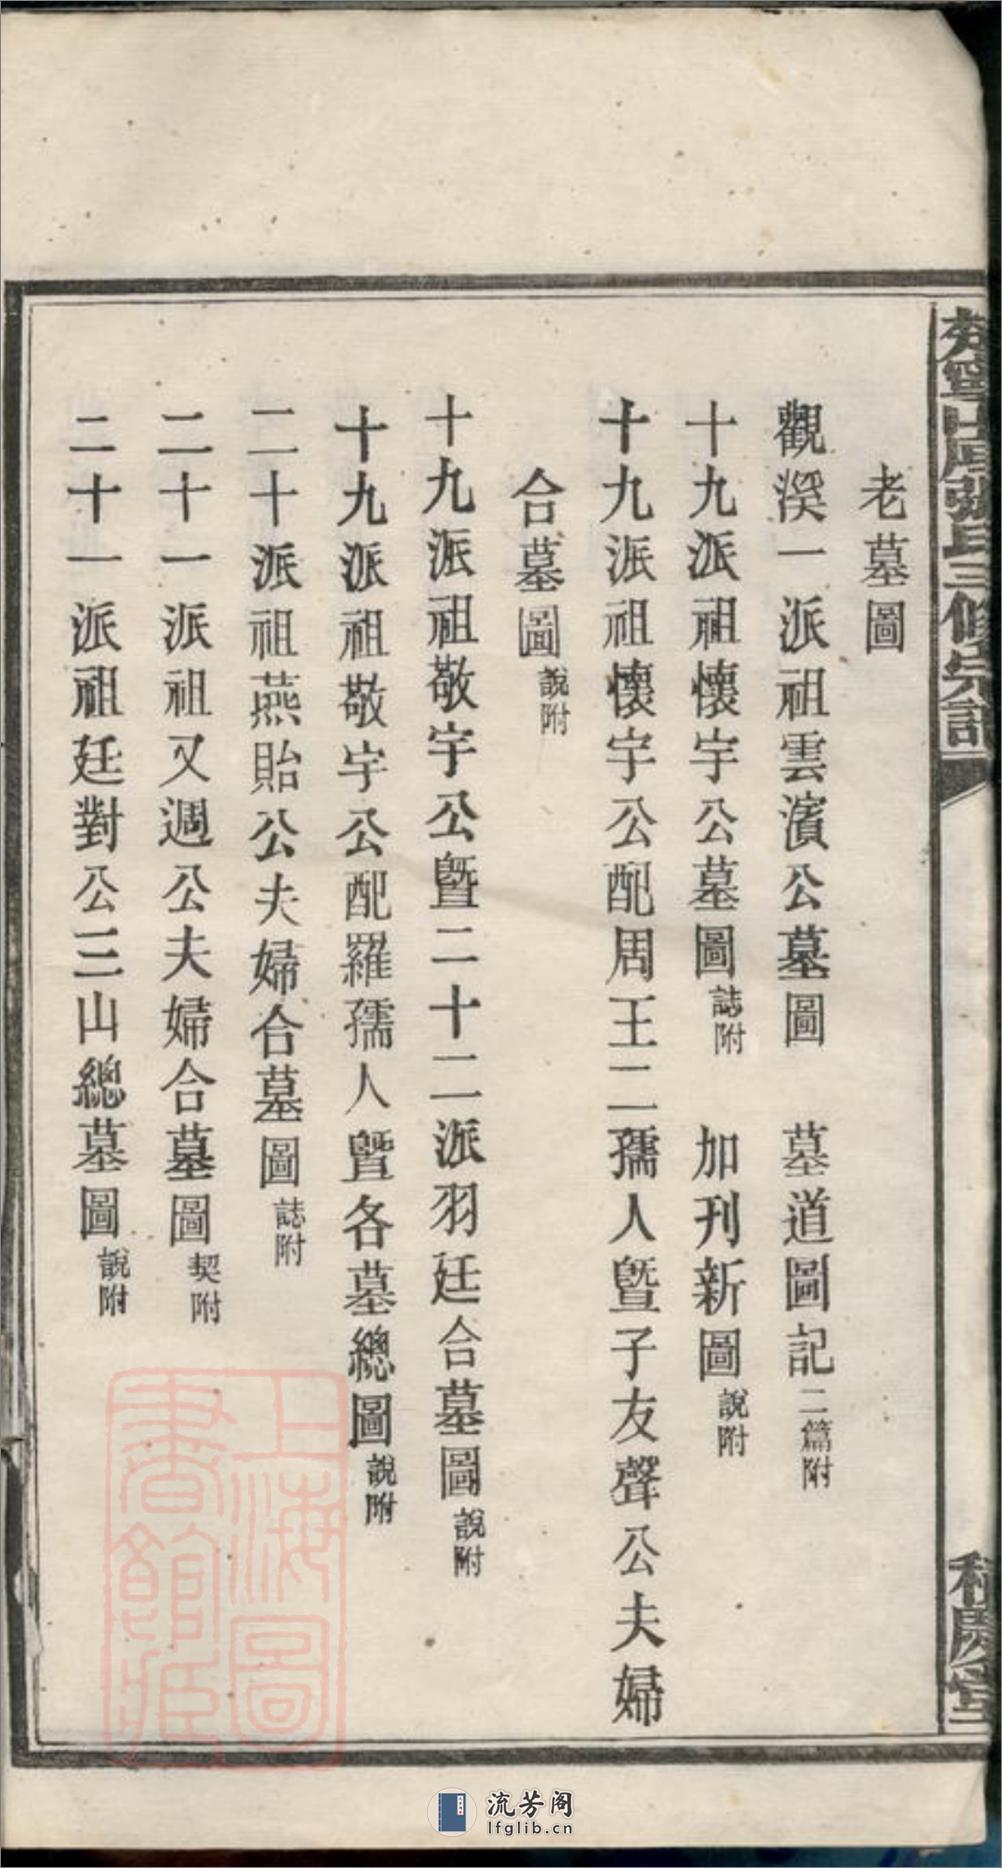 老墓圖
觀漢一派祖雲濱公墓圖　墓道圖記二篇附
十九派祖懷宇公墓圖誌附　加刊新圖說附
十九派祖懷宇公配周王二孺人曁子友聲公夫婦
合墓圖說附
十九派祖敬宇公曁二十二派羽廷合墓圖說附
十九派祖敬宇公配羅孺人曁各墓總圖說附
二十派祖燕貽公夫婦合墓圖誌附
二十一派祖又週公夫婦合墓圖契附
二十一派祖廷對公三山總墓圖說附
張氏三修宗譜
上海圖書館藏
流芳阁
lfglib.cn